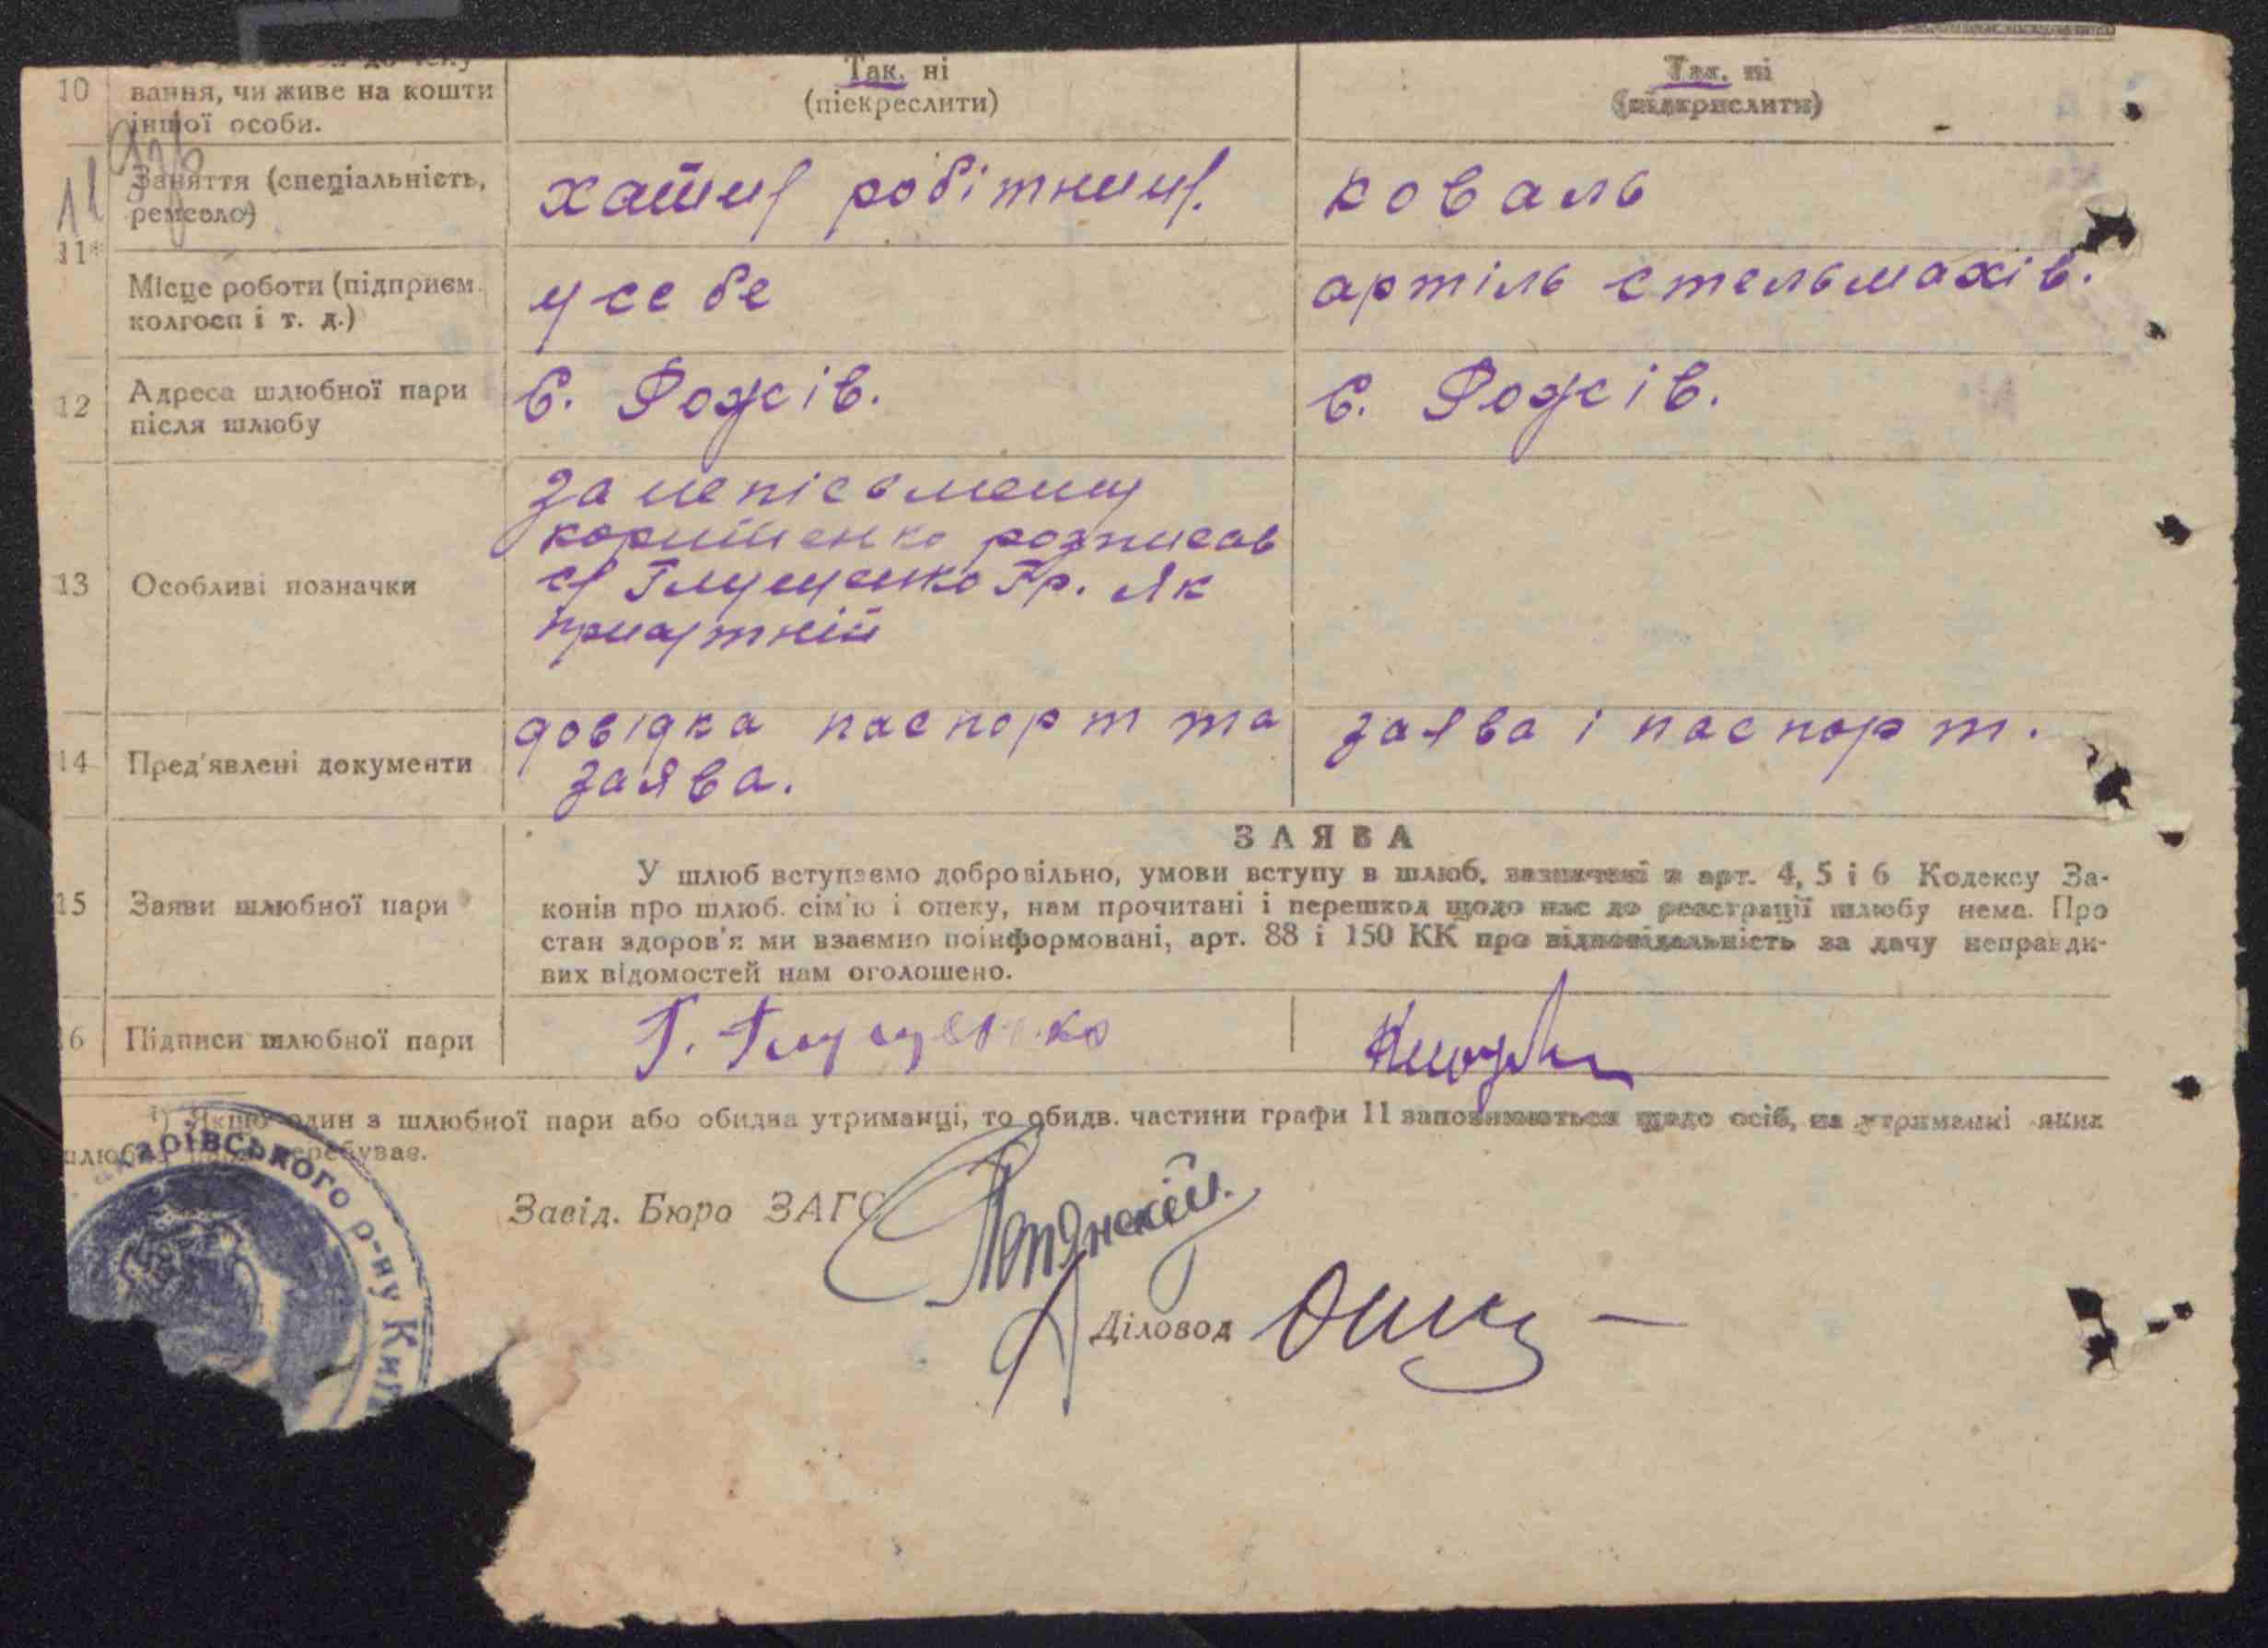 10 вання, чи живе на кошти іншої особи.
Так, ні
(піекреслити)
Так, ні
(підкрислити)
11
11*
Заняття (спеціальність, ремесло)
хатня робітниця.
коваль
Місце роботи (підприєм. колгосп і т. д.)
у себе
артіль стельмахів.
12 Адреса шлюбної пари після шлюбу
с. Рожів.
с. Рожів.
13 Особливі позначки
за непісьмену
розписав
ся Глущенко Гр. Як
14 Пред'явлені документи
довідка паспорт та
заява.
заява і паспорт.
15 Заяви шлюбної пари
ЗАЯВА
У шлюб вступаємо добровільно, умови вступу в шлюб, зазначені в арт. 4, 5 і 6 Кодексу За-
конів про шлюб. сім'ю і опеку, нам прочитані і перешкод щодо нас до реєстрації шлюбу нема. Про
стан здоров'я ми взаємно поінформовані, арт. 88 і 150 КК про відповідальність за дачу неправди-
вих відомостей нам оголошено.
6 Підписи шлюбної пари
Г. Глущенко
1) Якщо один з шлюбної пари або обидва утриманці, то обидв. частини графи 11 заповнюються щодо осіб, на утриманні яких
перебуває.
Завід. Бюро ЗАГС
Діловод
р-ну Киї